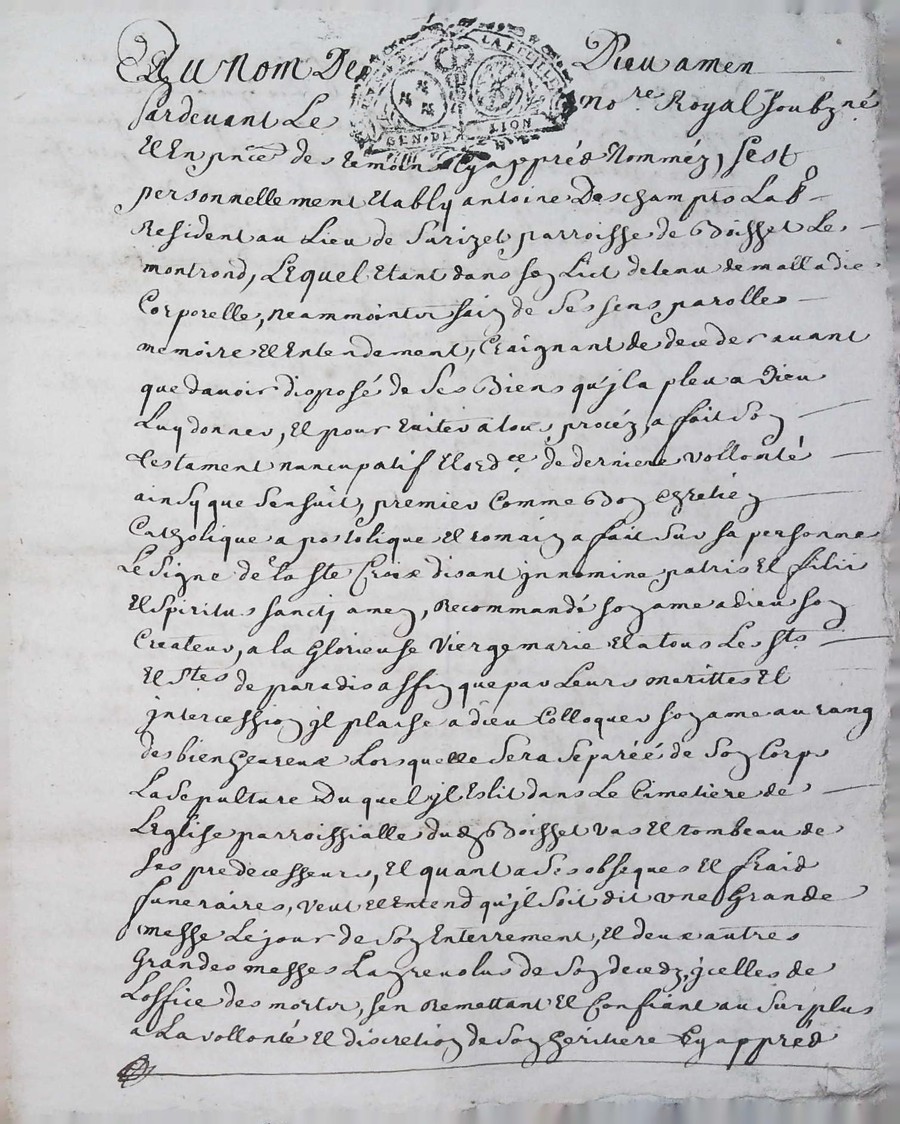 Au Nom De Dieu amen
Pardevant Le no.re Royal Soubzné
Et En pnce des temoins Cy apprés Nommez, sest
personnellement Etably antoine Deschamps Lab.r
Resident au Lieu de Surizet parroisse de Boisset Les
montrond, Lequel Etant dans son Lict detenu de malladie
Corporelle, neammointz sain de Ses sens parolle
memoire et Entendement, Craignant de deceder avant
que davoir disposé de Ses Biens qu'jl a pleu a Dieu
Luy donner, Et pour Eviter a tous procéz, a fait Son
testament nuncupatif Et ord.ce de derniere vollonté
ainsy que sensuit, premier Comme Bon Chretien
Catholique apostolique et romain a fait sur sa personne
Le signe de la Ste Croix disant jn nomine patris Et filii
Et Spiritus sancti amen, Recommandé son ame a dieu son
Createur, a la Glorieuse Vierge marie Et a tous Les Sts
Et Stes de paradis affin que par Leurs merittes Et
jntercession jl plaise a dieu Colloquer son ame au rang
des bienheureux Lorsquelle Sera Separéé de Son Corps
La Sepulture Duquel jl Eslit dans Le Cimetiere de
L'eglise parroissialle dud Boisset vas Et tombeau de
ses predecesseurs, Et quant a Ses obseques Et fraid
funeraires, veut et Entend qu'jl Soit dit une Grande
messe Le jour de Son Enterrement, Et deux autres
Grandes messes La revolus de Son decedz, jcelles de
Loffice des mortz, sen Remettant Et Confiant au Surplus
a La vollonté Et discretion de Son heritiere Cy apprés
GEN. DE LION